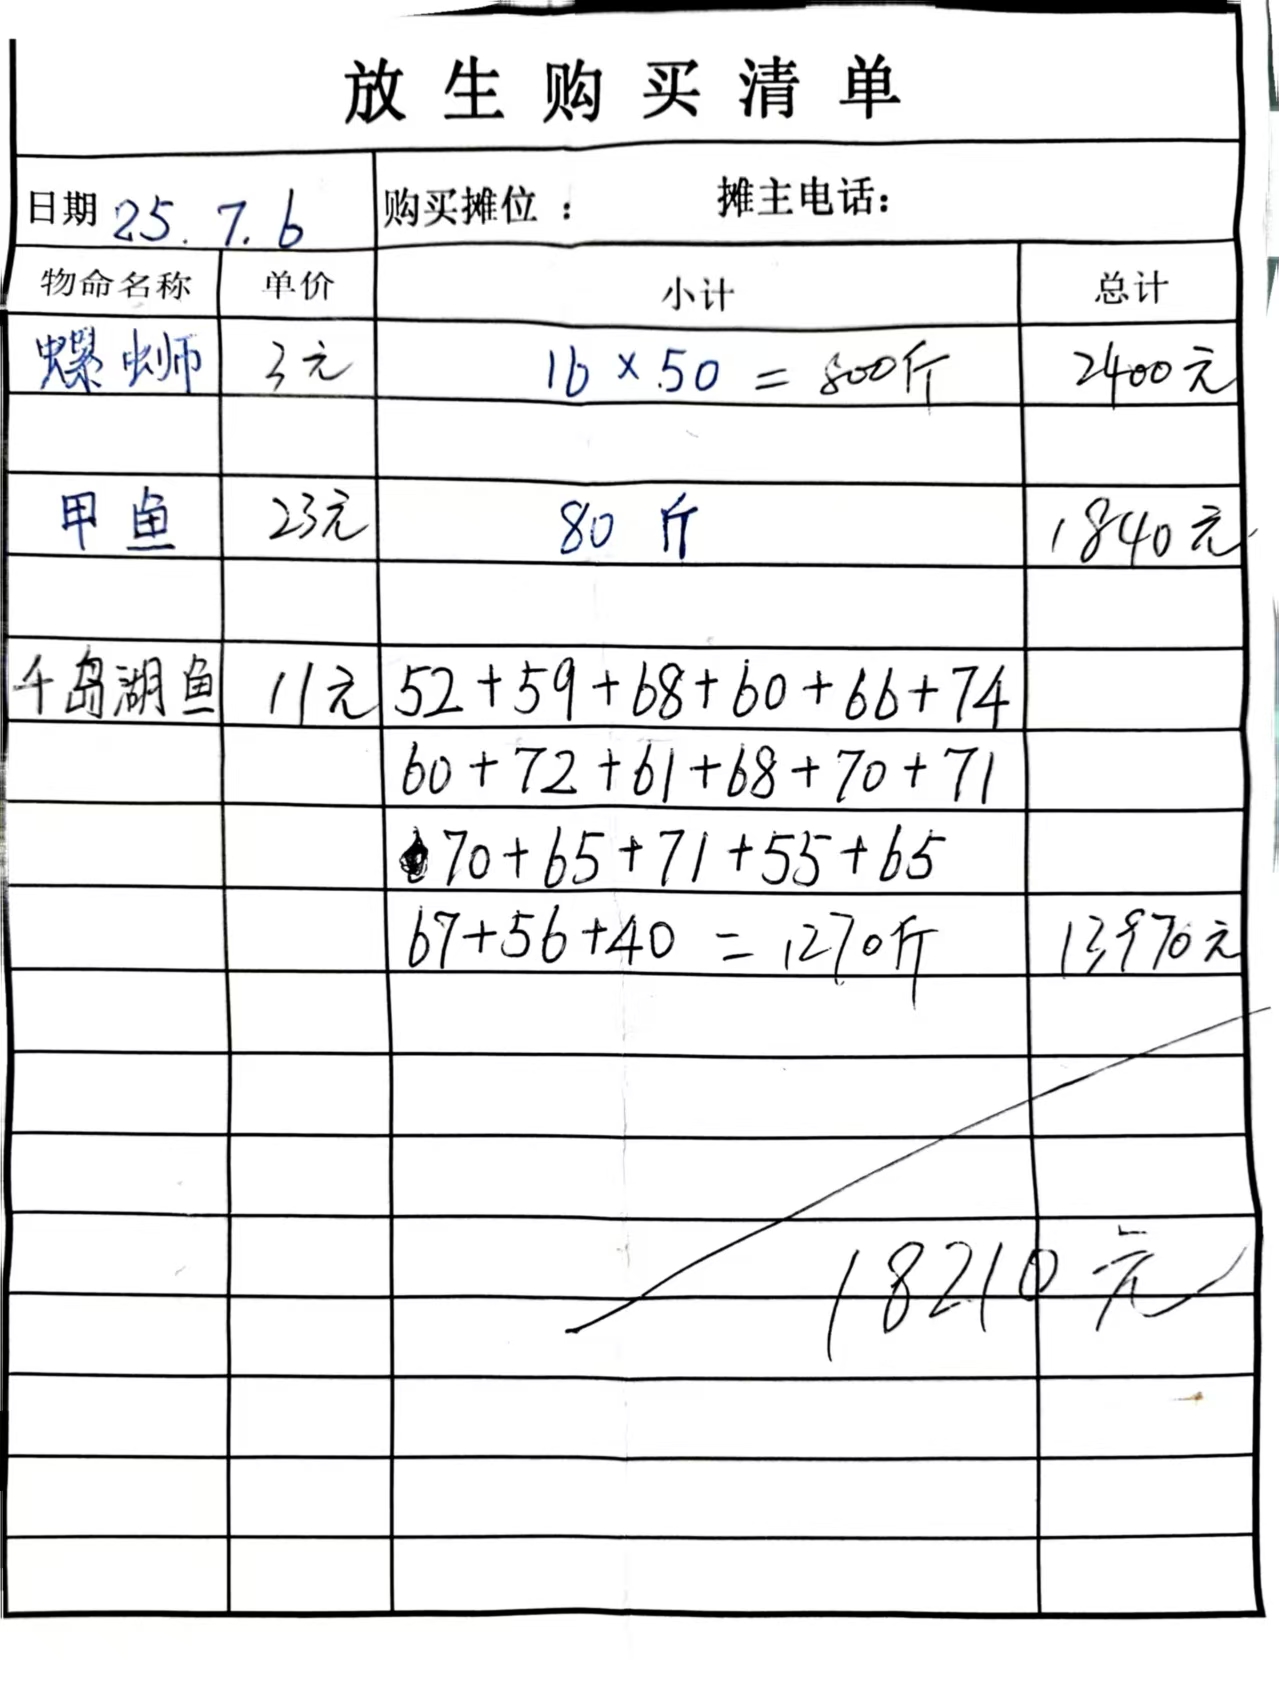 放生购买清单
日期 25.7.6 购买摊位： 摊主电话：
物命名称 单价 小计 总计
螺蛳 3元 16×50=800斤 2400元
甲鱼 23元 80斤 1840元
千岛湖鱼 11元 52+59+68+60+66+74
60+72+61+68+70+71
70+65+71+55+65
67+56+40=1270斤 13970元
18210元